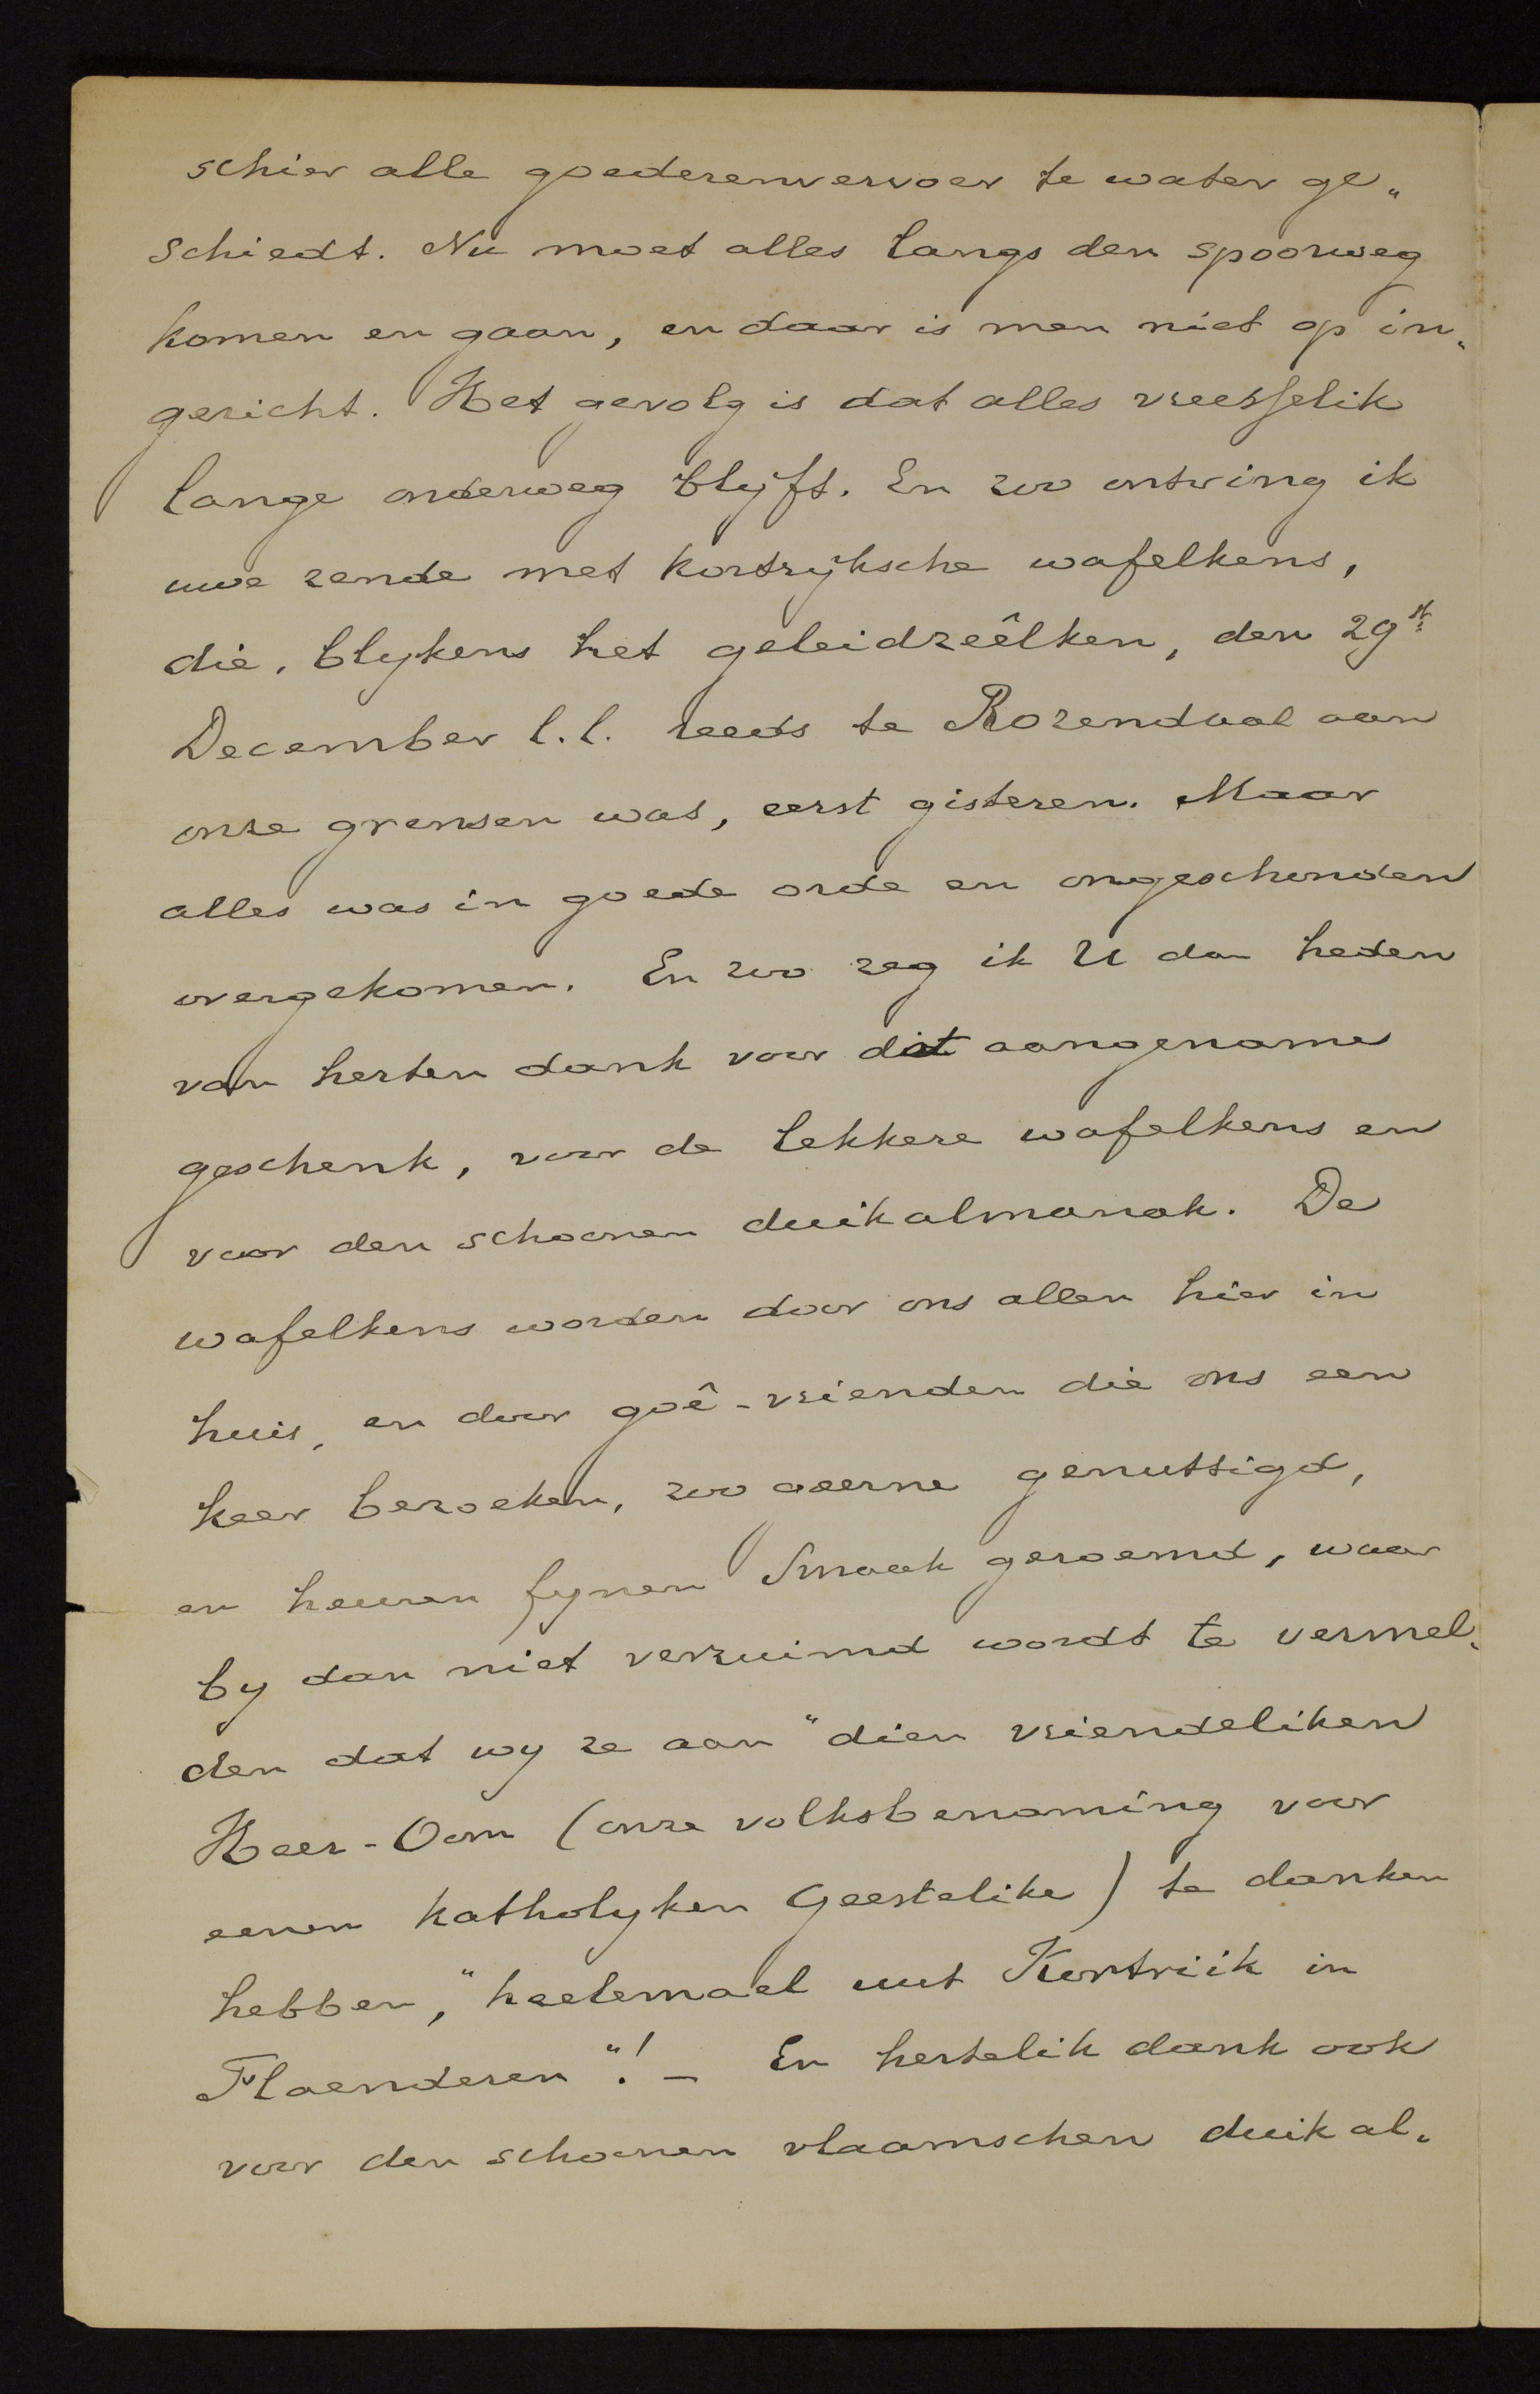 schier alle goederenvervoer te water ge„
schiedt. Nu moet alles langs den spoorweg
komen en gaan, en daar is men niet op in„
gericht. Het gevolg is dat alles vreesselik
lange onderweg blyft. En zoo ontving ik
uwe zende met kortryksche wafelkens,
die, blykens het geleidzeêlken, den 29st
December l.l. reeds te Rozendaal aan
onze grensen was, eerst gisteren. Maar
alles was in goede orde en ongeschonden
overgekomen. En zoo zeg ik U dan heden
van herten dank voor dit aangename
geschenk, voor de lekkere wafelkens en
voor den schoonen duikalmanak. De
wafelkens worden door ons allen hier in
huis, en door goê-vrienden die ons een
keer bezoeken, zoo geerne genuttigd,
en heuren fynen smaak geroemd, waar
by dan niet verzuimd wordt te vermel„
den dat wy ze aan "dien vriendeliken
Heer-Oom (onze volksbenaming voor
eenen katholyken Geestelike) te danken
hebben," heelemael uut Kortriik in
Flaenderen"! — En hertelik dank ook
voor den schoonen vlaamschen duikal„